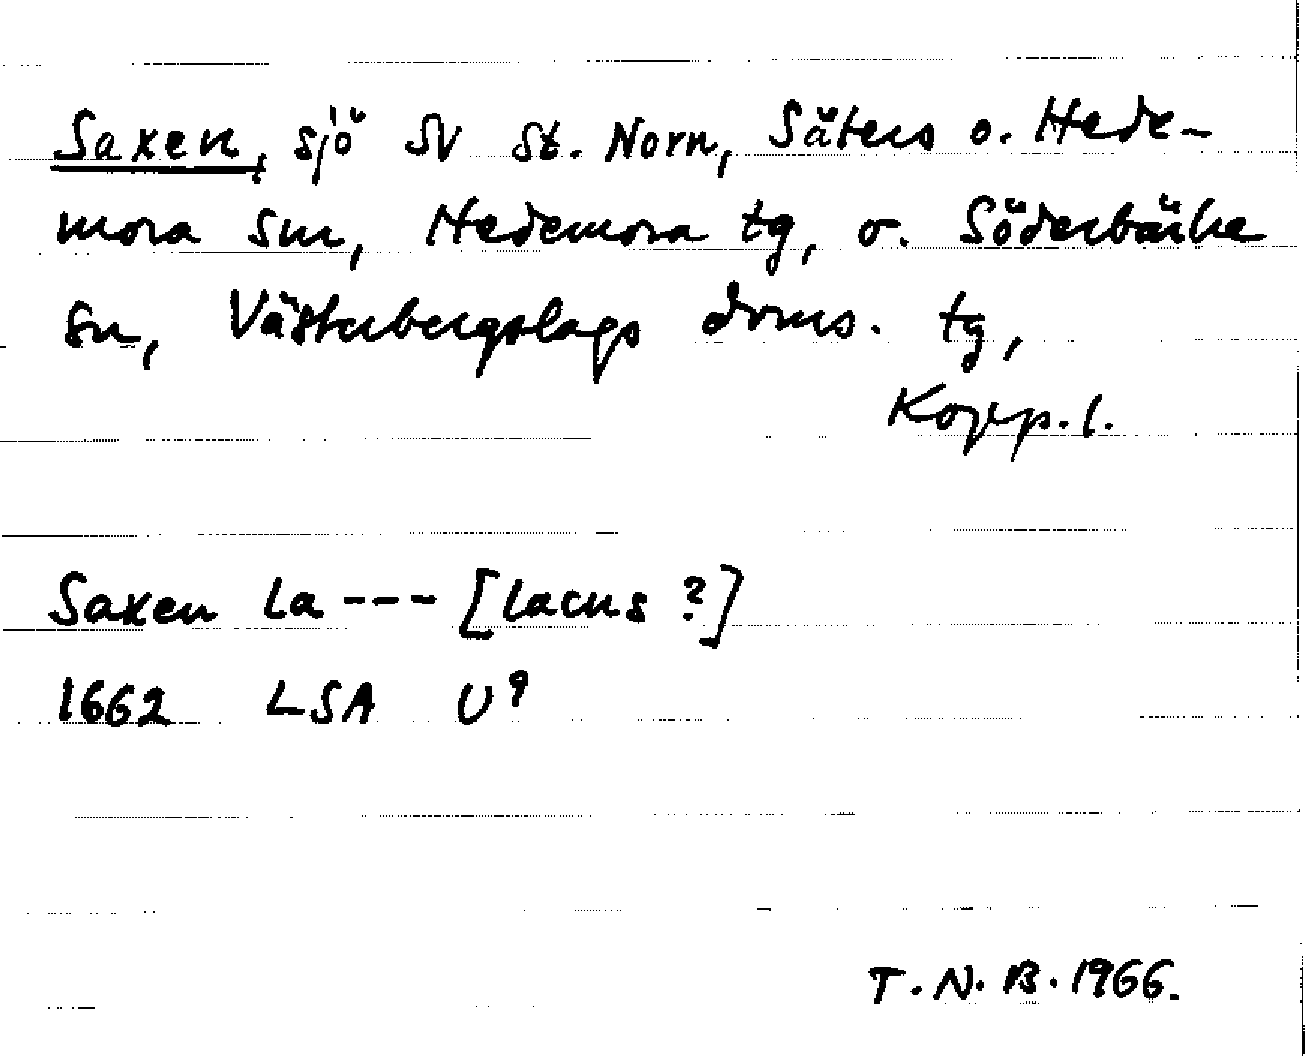 Saxen, sjö SV St. Norn, Säters o. Hede-
mora snr, Hedemora tg, o. Söderbärke
sn, Västerbergslags doms. tg,
Kopp. l.
Saxen La --- [lacus ?]
1662 LSA U⁹
T. N. B. 1966.